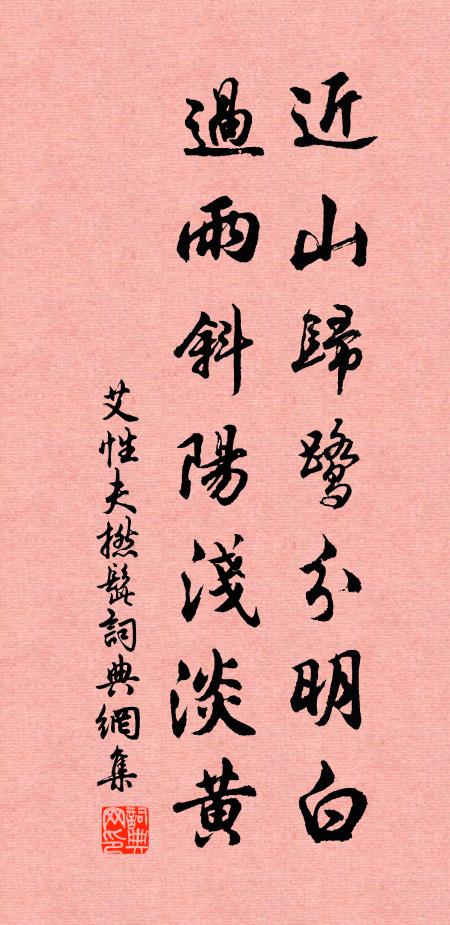 近山歸鷺分明白
過雨斜陽淺淡黃
艾性夫撚髭詞典網集
詞典网印